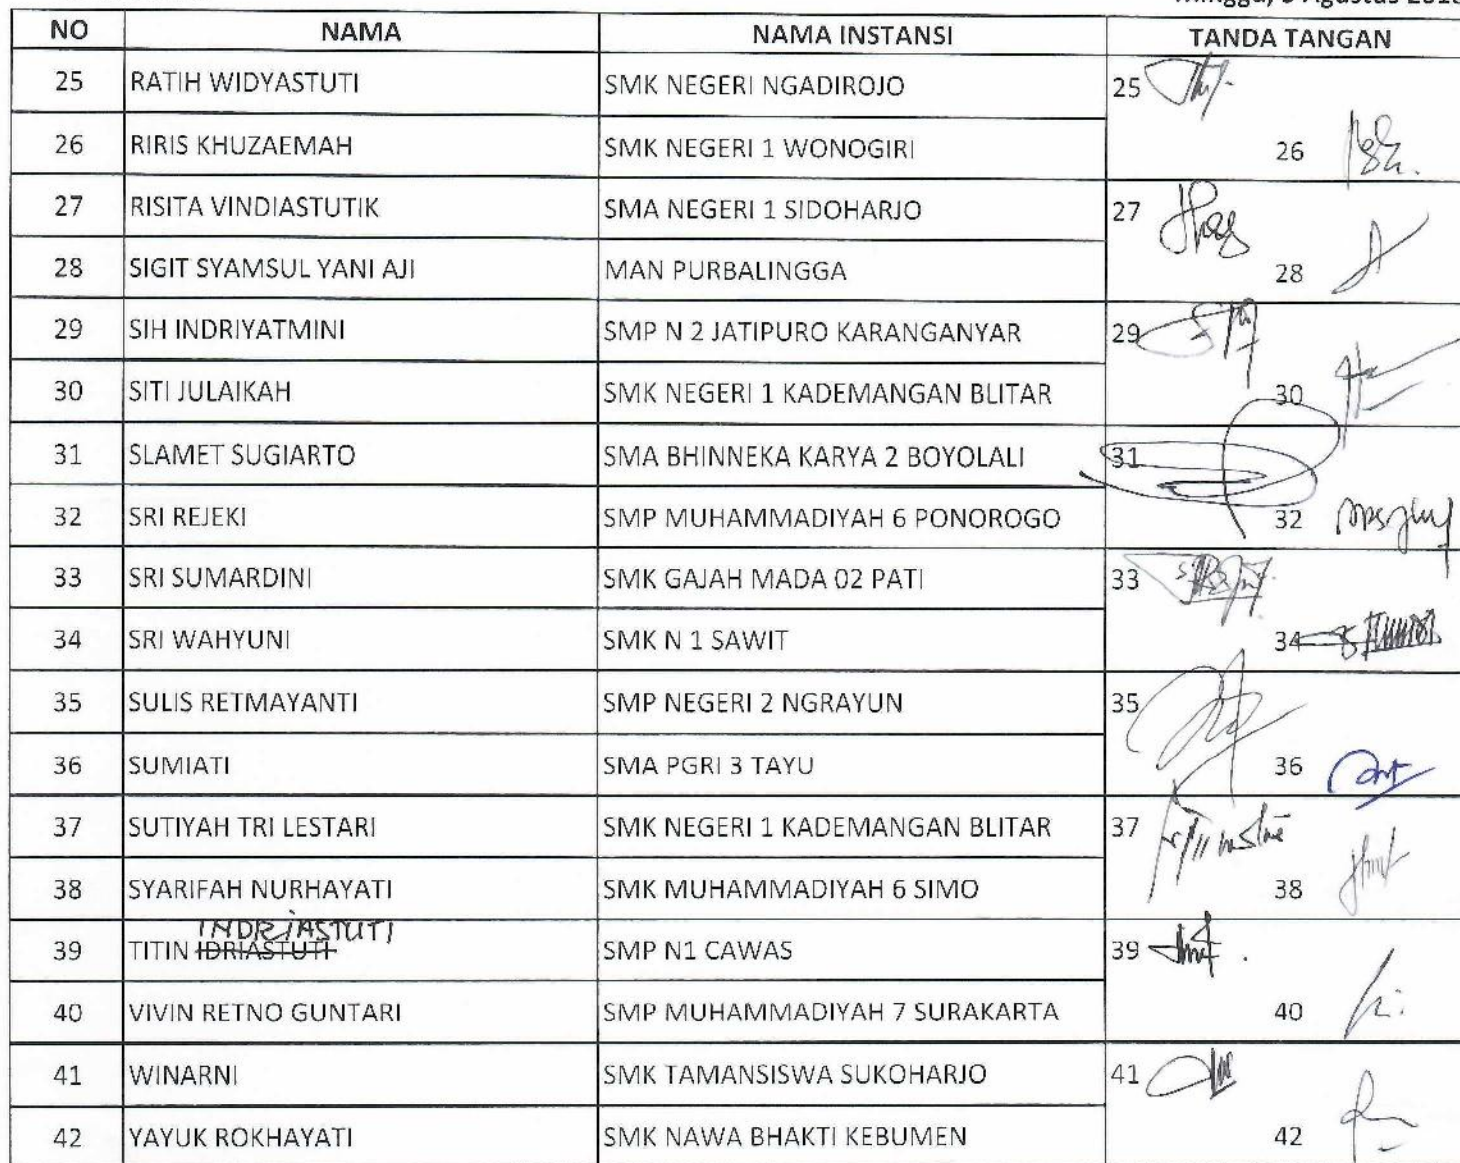 NO NAMA NAMA INSTANSI TANDA TANGAN
25 RATIH WIDYASTUTI SMK NEGERI NGADIROJO 25
26 RIRIS KHUZAEMAH SMK NEGERI 1 WONOGIRI 26
27 RISITA VINDIASTUTIK SMA NEGERI 1 SIDOHARJO 27
28 SIGIT SYAMSUL YANI AJI MAN PURBALINGGA 28
29 SIH INDRIYATMINI SMP N 2 JATIPURO KARANGANYAR 29
30 SITI JULAIKAH SMK NEGERI 1 KADEMANGAN BLITAR 30
31 SLAMET SUGIARTO SMA BHINNEKA KARYA 2 BOYOLALI 31
32 SRI REJEKI SMP MUHAMMADIYAH 6 PONOROGO 32
33 SRI SUMARDINI SMK GAJAH MADA 02 PATI 33
34 SRI WAHYUNI SMK N 1 SAWIT 34
35 SULIS RETMAYANTI SMP NEGERI 2 NGRAYUN 35
36 SUMIATI SMA PGRI 3 TAYU 36
37 SUTIYAH TRI LESTARI SMK NEGERI 1 KADEMANGAN BLITAR 37
38 SYARIFAH NURHAYATI SMK MUHAMMADIYAH 6 SIMO 38
INDRIASTUTI
39 TITIN IDRIASTUTI SMP N1 CAWAS 39
40 VIVIN RETNO GUNTARI SMP MUHAMMADIYAH 7 SURAKARTA 40
41 WINARNI SMK TAMANSISWA SUKOHARJO 41
42 YAYUK ROKHAYATI SMK NAWA BHAKTI KEBUMEN 42